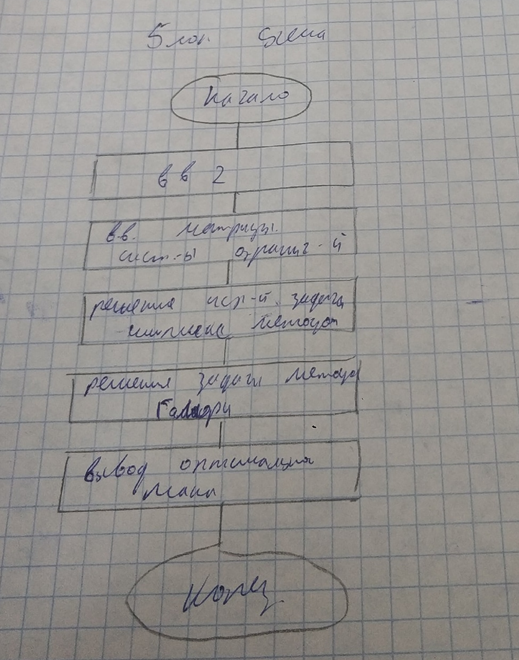 Блок схема
Начало
в в 2
вв. матрицы
сист-ы огранич-й
решение исп-й задачи
симплекс методом
решения задачи метода
Гомори
вывод оптимация
плана
Конец